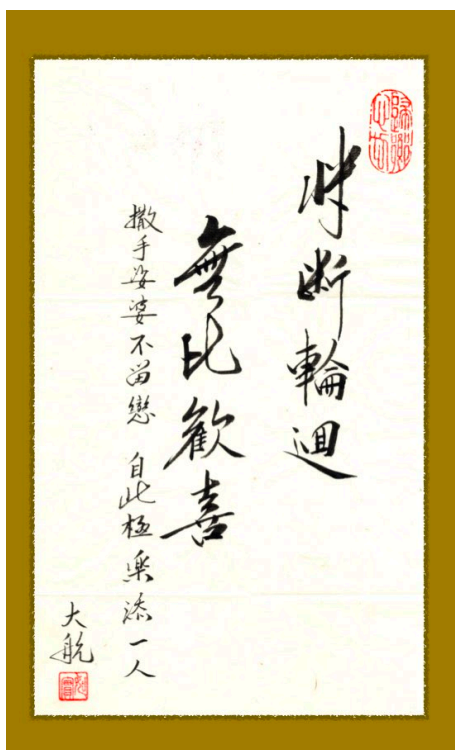 断輪迴
無比歡喜
撒手娑婆不留戀 自此極樂添一人
大航